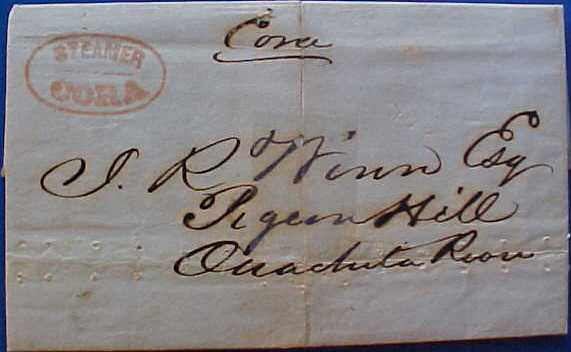 STEAMER
CORA
Cora
J. R. Winn Esq
Pigeon Hill
Ouachita River